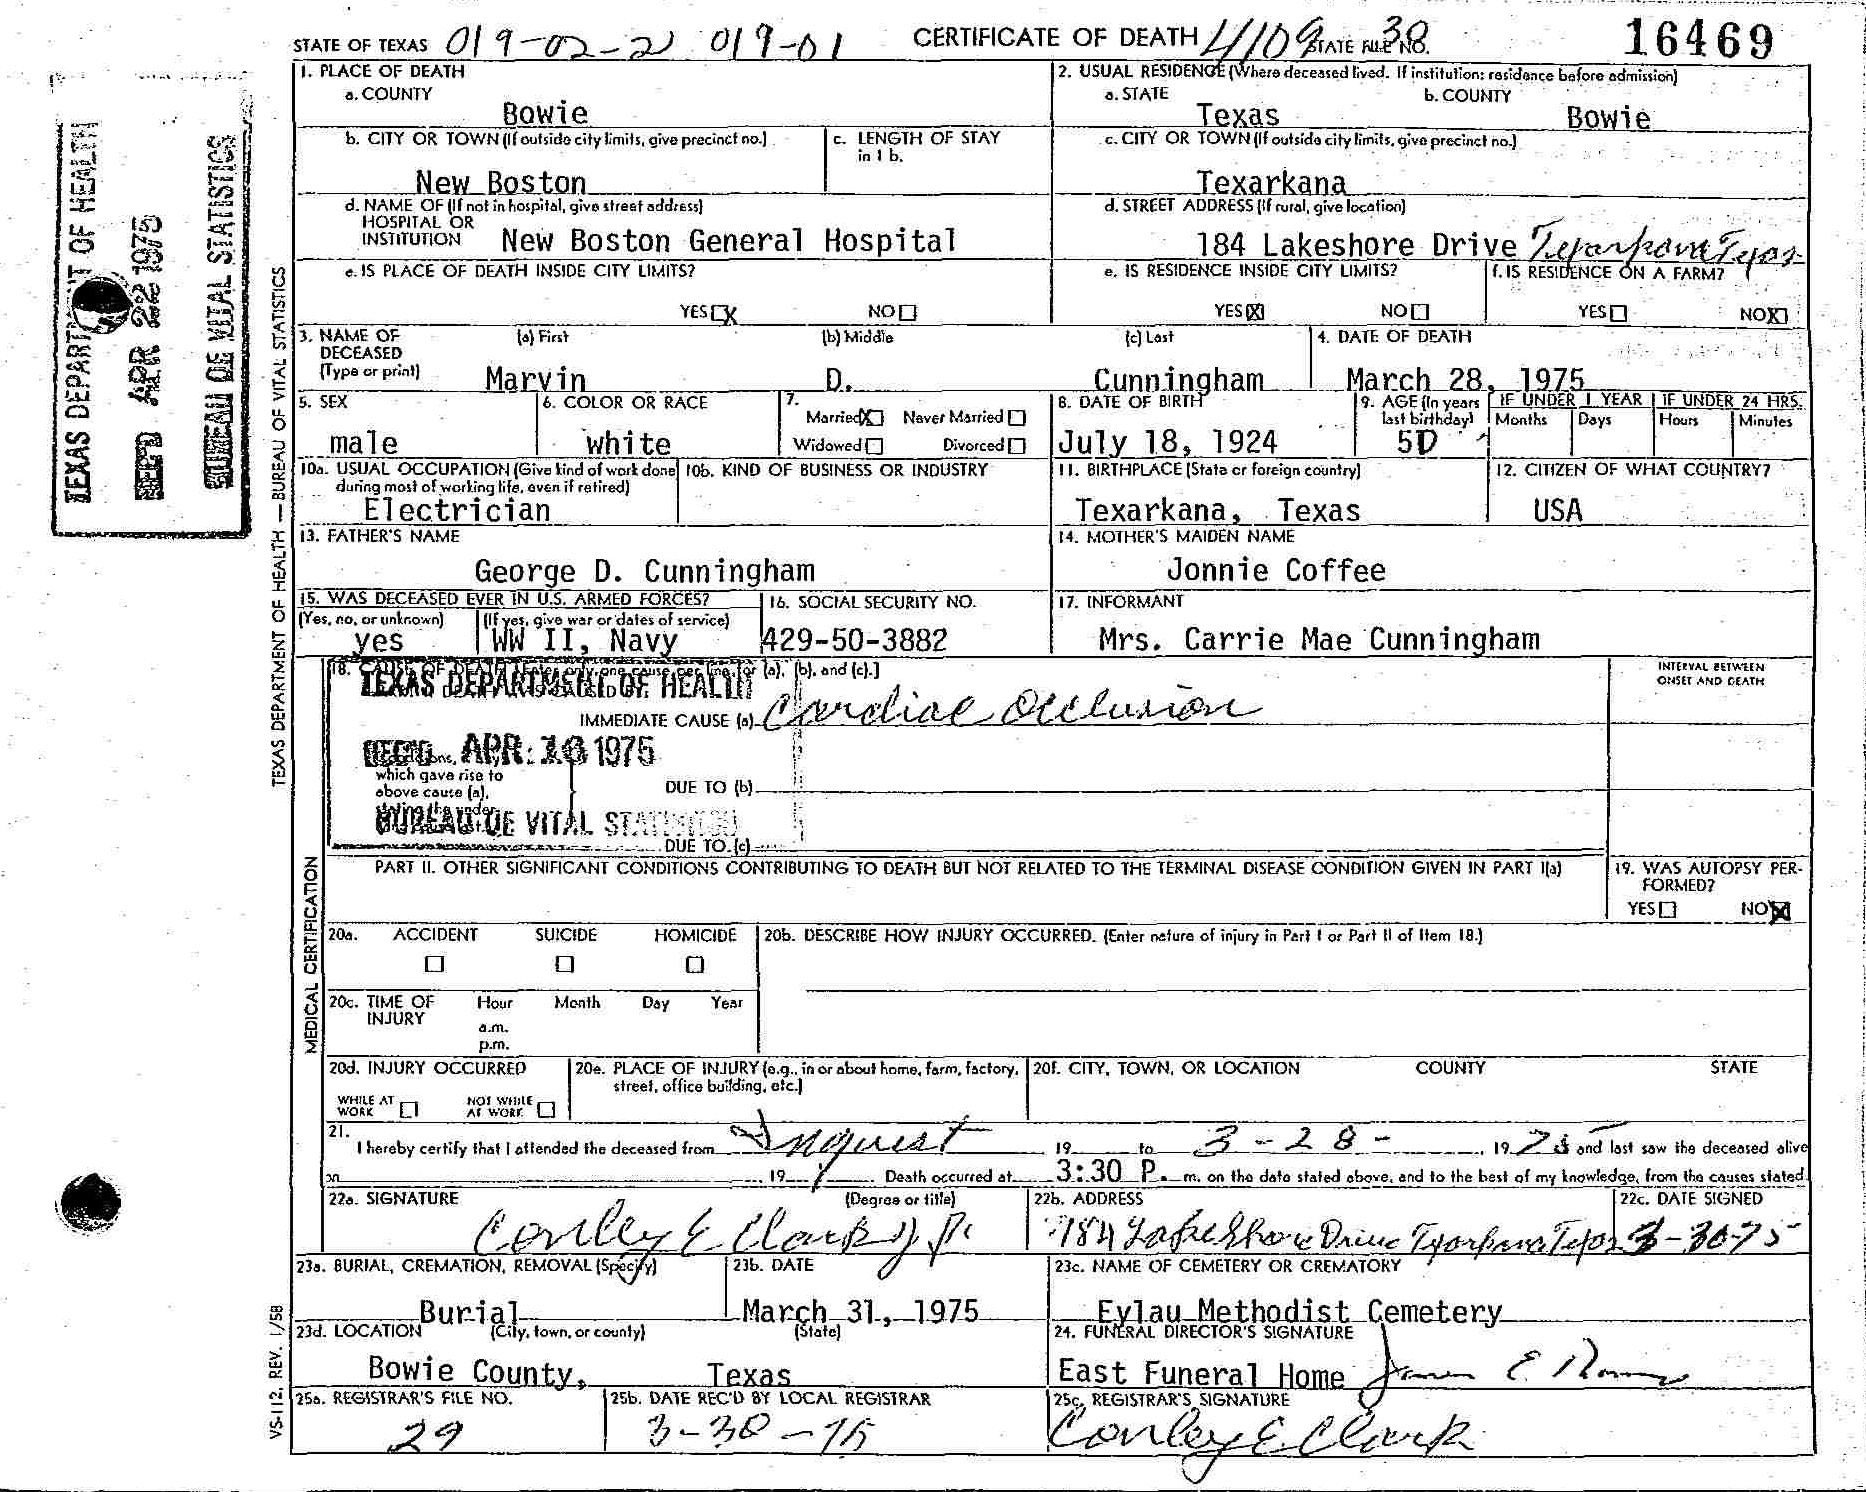 STATE OF TEXAS 019-02-2 019-01 CERTIFICATE OF DEATH 4109 STATE FILE NO. 38 16469
1. PLACE OF DEATH
a. COUNTY
Bowie
2. USUAL RESIDENCE (Where deceased lived. If institution: residence before admission)
a. STATE b. COUNTY
Texas Bowie
b. CITY OR TOWN (If outside city limits, give precinct no.)
New Boston
c. LENGTH OF STAY
in 1 b.
c. CITY OR TOWN (If outside city limits, give precinct no.)
Texarkana
d. NAME OF (If not in hospital, give street address)
HOSPITAL OR
INSTITUTION New Boston General Hospital
d. STREET ADDRESS (If rural, give location)
184 Lakeshore Drive Texarkana Texas
e. IS PLACE OF DEATH INSIDE CITY LIMITS?
YES X NO
e. IS RESIDENCE INSIDE CITY LIMITS?
YES X NO
f. IS RESIDENCE ON A FARM?
YES NO X
3. NAME OF
DECEASED
(Type or print)
(a) First (b) Middle (c) Last
Marvin D. Cunningham
4. DATE OF DEATH
March 28, 1975
5. SEX
male
6. COLOR OR RACE
white
7.
Married X Never Married
Widowed Divorced
8. DATE OF BIRTH
July 18, 1924
9. AGE (In years
last birthday)
50
IF UNDER 1 YEAR IF UNDER 24 HRS.
Months Days Hours Minutes
10a. USUAL OCCUPATION (Give kind of work done
during most of working life, even if retired)
Electrician
10b. KIND OF BUSINESS OR INDUSTRY
11. BIRTHPLACE (State or foreign country)
Texarkana, Texas
12. CITIZEN OF WHAT COUNTRY?
USA
13. FATHER'S NAME
George D. Cunningham
14. MOTHER'S MAIDEN NAME
Jonnie Coffee
15. WAS DECEASED EVER IN U.S. ARMED FORCES?
(Yes, no, or unknown) (If yes, give war or dates of service)
yes WW II, Navy
16. SOCIAL SECURITY NO.
429-50-3882
17. INFORMANT
Mrs. Carrie Mae Cunningham
18. CAUSE OF DEATH [Enter only one cause per line for (a), (b), and (c).]
TEXAS DEPARTMENT OF HEALTH
INTERVAL BETWEEN
ONSET AND DEATH
IMMEDIATE CAUSE (a) Cardiac Occlusion
REC'D APR 1975
which gave rise to
above cause (a),
stating the under
DUE TO (b)
BUREAU OF VITAL STATISTICS
DUE TO (c)
PART II. OTHER SIGNIFICANT CONDITIONS CONTRIBUTING TO DEATH BUT NOT RELATED TO THE TERMINAL DISEASE CONDITION GIVEN IN PART I(a)
19. WAS AUTOPSY PER-
FORMED?
YES NO X
20a. ACCIDENT SUICIDE HOMICIDE
20b. DESCRIBE HOW INJURY OCCURRED. (Enter nature of injury in Part I or Part II of Item 18.)
20c. TIME OF
INJURY
Hour Month Day Year
a.m.
p.m.
20d. INJURY OCCURRED
WHILE AT
WORK
NOT WHILE
AT WORK
20e. PLACE OF INJURY (e.g., in or about home, farm, factory,
street, office building, etc.)
20f. CITY, TOWN, OR LOCATION COUNTY STATE
21.
I hereby certify that I attended the deceased from Inquest 19 to 3-28- 1975 and last saw the deceased alive
on 19 Death occurred at 3:30 P. m. on the date stated above, and to the best of my knowledge, from the causes stated.
22a. SIGNATURE (Degree or title)
Conley E Clark
22b. ADDRESS
184 Lakeshore Drive Texarkana Texas
22c. DATE SIGNED
3-30-75
23a. BURIAL, CREMATION, REMOVAL (Specify)
Burial
23b. DATE
March 31, 1975
23c. NAME OF CEMETERY OR CREMATORY
Eylau Methodist Cemetery
23d. LOCATION (City, town, or county) (State)
Bowie County, Texas
24. FUNERAL DIRECTOR'S SIGNATURE
East Funeral Home
25a. REGISTRAR'S FILE NO.
29
25b. DATE REC'D BY LOCAL REGISTRAR
3-30-75
25c. REGISTRAR'S SIGNATURE
Conley E. Clark
TEXAS DEPARTMENT OF HEALTH
REC'D APR 22 1975
BUREAU OF VITAL STATISTICS
TEXAS DEPARTMENT OF HEALTH — BUREAU OF VITAL STATISTICS
MEDICAL CERTIFICATION
VS-112, REV. 1/58